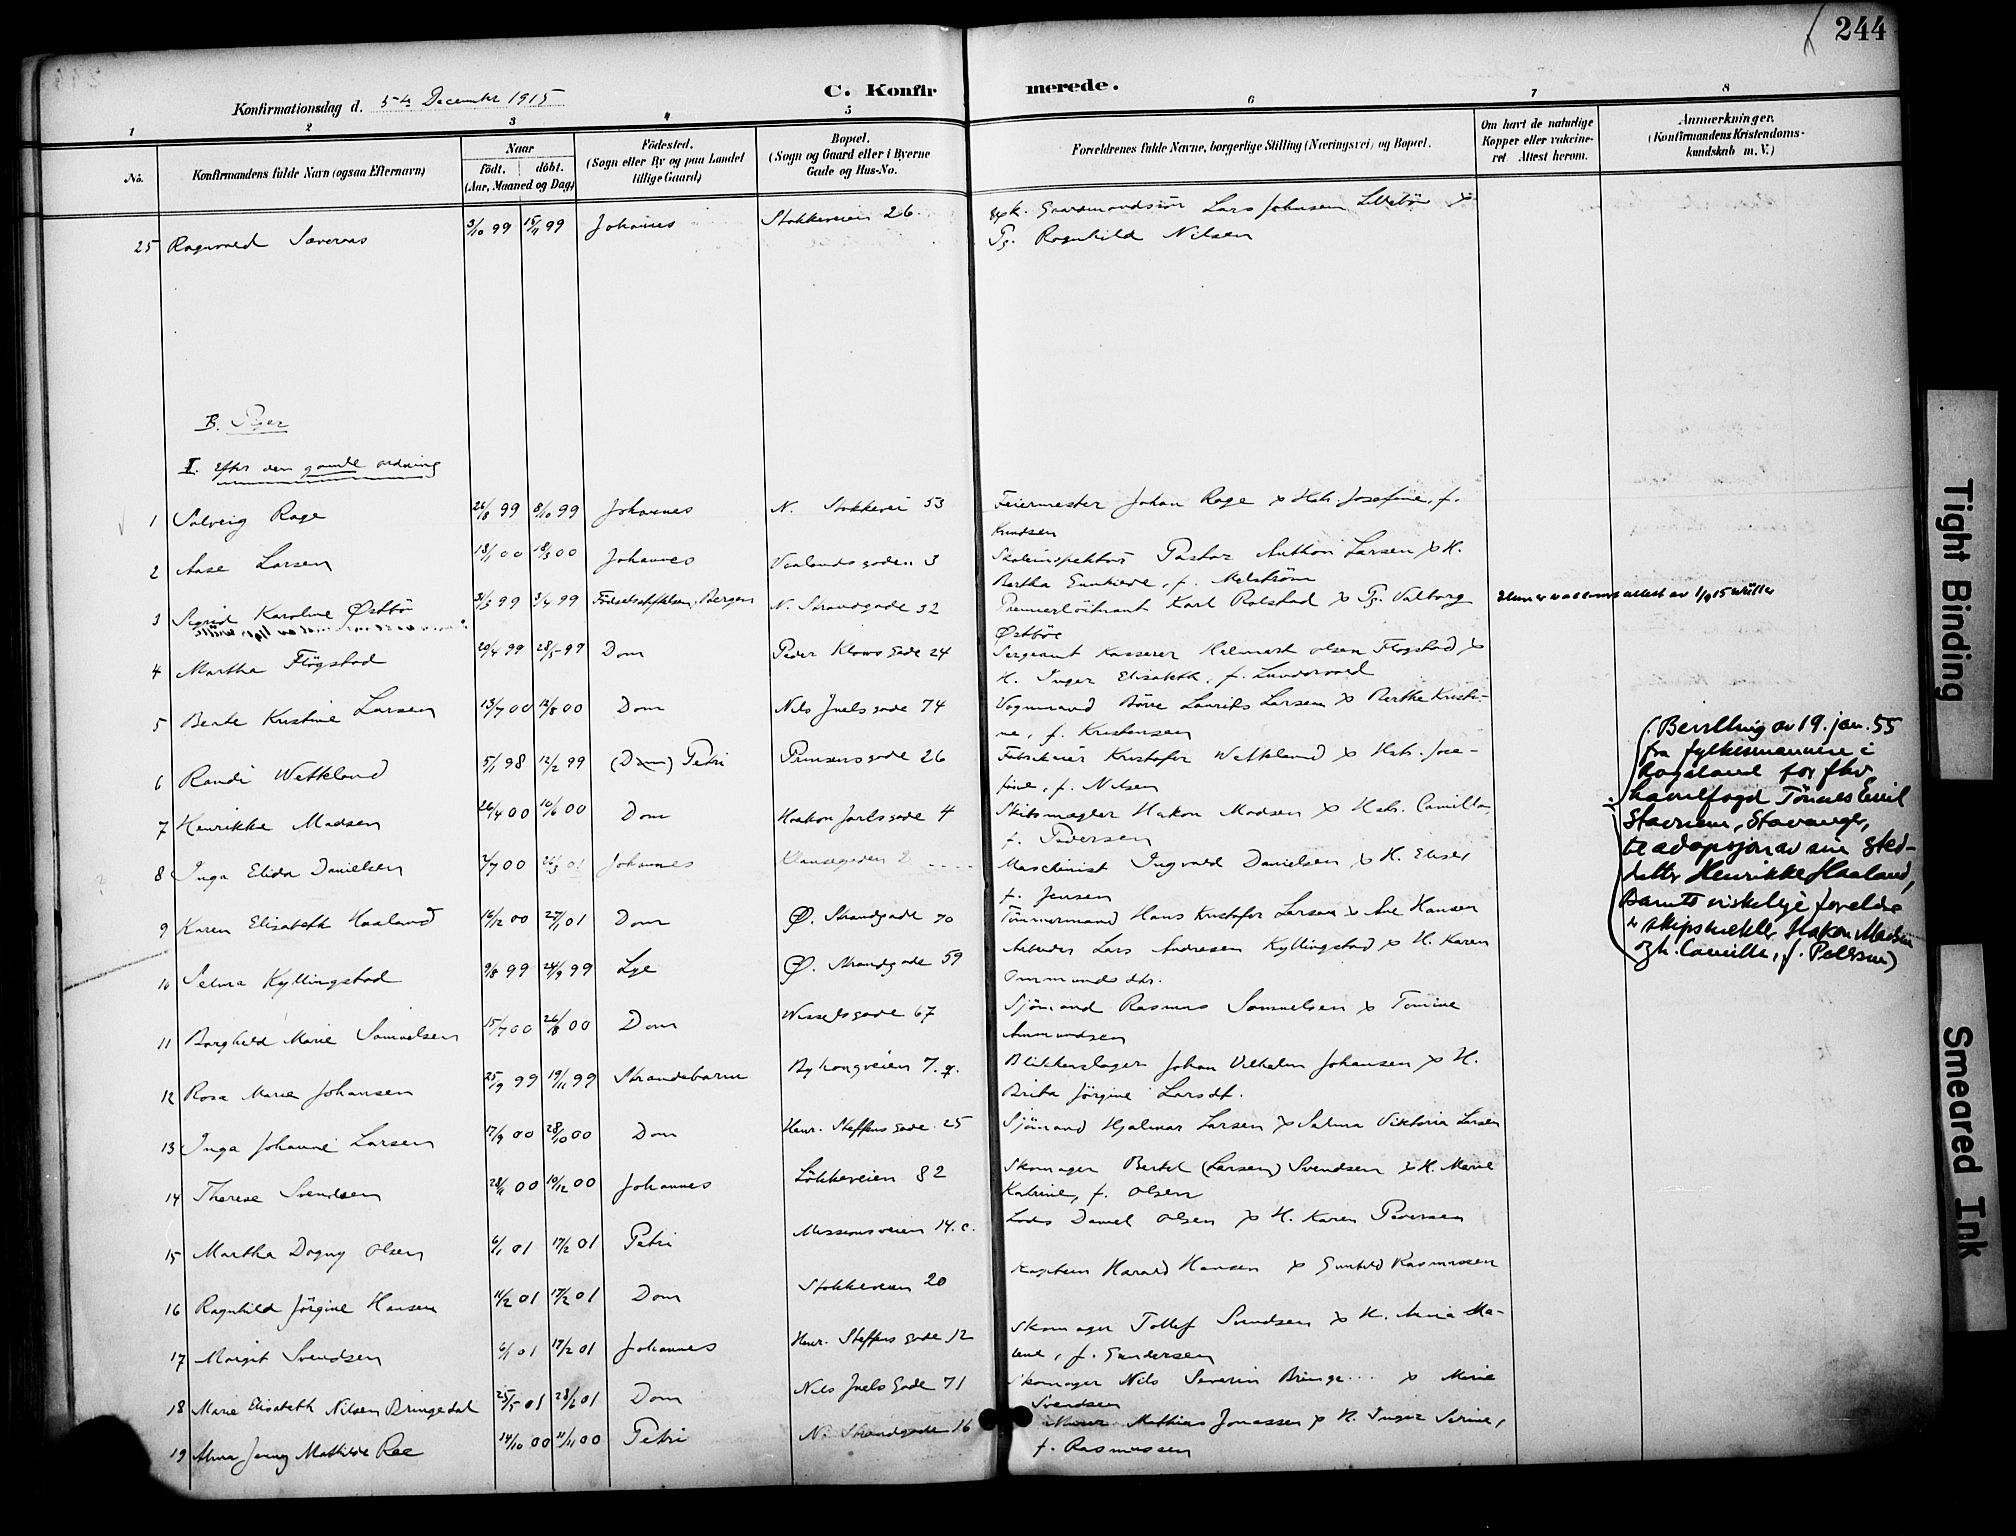 244
Konfirmationsdag d. 5te December 1915
C. Konfirmerede.
1 2 3 4 5 6 7 8
No. Konfirmandens fulde Navn (ogsaa Efternavn) Naar Født, døbt. (Aar, Maaned og Dag) Fødested. (Sogn eller By og paa Landet tillige Gaard) Bopæl. (Sogn og Gaard eller i Byerne Gade og Hus-No. Forældrenes fulde Navne, borgerlige Stilling (Næringsvei) og Bopæl. Om havt de naturlige Kopper eller vakcineret. Attest herom. Anmærkninger. (Konfirmandens Kristendomskundskab m. V.)
25 Ragnvald Sævernes 3/10 99 15/11 99 Johannes Stokkeveien 26. Lars Johnsen
Pg. Ragnhild Nilsen
B. Piger
I. Efter den gamle ordning
1 Solveig Rage 26/8 99 8/10 99 Johannes N. Stokkevei 53 Feiermester Johan Rage & Hstr. Josefine, f.
Knudsen
2 Aase Larsen 18/1 00 18/3 00 Johannes Vaalandsgaden 3 Skoleinspektør Pastor Anthon Larsen & H.
Bertha f. Melstrøm
3 Sigrid Karoline Østbø 31/3 99 3/4 99 Fødselsstiftelsen, Bergen N. Strandgade 32 Premierløitnant Karl Rolstad & Pg. Valborg
Østbøe
4 Martha Fløgstad 20/4 99 28/5 99 Dom Peder Klows gade 24 Sergeant Kasserer Helmert Olsen Fløgstad &
H. Inger Elisabeth, f. Lundervold
5 Beate Kristine Larsen 13/7 00 12/8 00 Dom Nils Juels gade 74 Vognmand Børre Laurits Larsen & Berthe Kristi-
ne, f. Kristensen
6 Randi Wetteland 5/1 98 12/2 99 (Dom) Petri Prinsensgade 26 Fabrikeier Kristofer Wetteland & Hstr. Jose-
fine, f. Nilsen
7 Henrikke Madsen 26/4 00 10/6 00 Dom Haakon Jarls gade 4 Skibsmægler Hakon Madsen & Hstr. Camilla,
f. Pedersen
8 Inga Elida Danielsen 2/7 00 Johannes Klausegaden 2 Maschinist Ingvald Danielsen & H. Elise,
f. Jensen
9 Karen Elisabeth Haaland 16/12 00 27/1 01 Dom Ø. Strandgade 70 Tømmermand Hans Kristofer Larsen & Ane Hansen
10 Selma Kyllingstad 9/8 99 24/9 99 Lye Ø. Strandgade 59 Arbeider Lars Andresen Kyllingstad & H. Karen
Ommundsdtr.
11 Borghild Marie Samuelsen 15/7 00 26/8 00 Dom Wesselsgade 67 Sjømand Rasmus Samuelsen & Tomine
Ammundsen
12 Rosa Marie Johansen 25/9 99 19/11 99 Strandebarm Byhaugveien 7. Blikkenslager Johan Vilhelm Johansen & H.
Brita Jørgine Larsdt.
13 Inga Johanne Larsen 17/9 00 28/10 00 Dom Henr. Steffens gade 25 Sjømand Hjalmar Larsen & Salma Viktoria Larsen
14 Therese Svendsen 28/11 00 10/12 00 Johannes Løkkeveien 82 Skomager Bertel (Larsen) Svendsen & H. Marie
Katrine, f. Olsen
15 Martha Dagny Olsen 6/1 01 17/2 01 Petri Missionsveien 14. c. Lods Daniel Olsen & H. Karen Pedersen
16 Ragnhild Jørgine Hansen 14/2 01 17/2 01 Dom Stokkeveien 20 Kaptein Harald Hansen & Gunhild Rasmussen
17 Margit Svendsen 6/1 01 17/2 01 Johannes Henr. Steffens gade 12 Skomager Tollef Svendsen & H. Anna Ma-
lene, f. Gundersen
18 Marie Elisabeth Nilsen Bringedal 25/5 01 28/6 01 Dom Nils Juels gade 71 Skomager Nils Severin & Marie
Svendsen
19 Alma Jenny Mathilde Ree 14/10 00 11/11 00 Petri N. Strandgade 16 Mathias Jonassen & H. Inger Serine,
f. Rasmussen
(Bevilling av 19. jan. 55
fra fylkesmannen i
Rogaland for fhv.
havnefogd Tønnes Emil
Stavnem, Stavanger,
til adopsjon av sin sted-
datter Henrikke Haaland,
Barnets virkelige foreldre
er skipsmekler Hakon Madsen
og h. Camilla, f. Pedersen)
Tight Binding
Smeared Ink